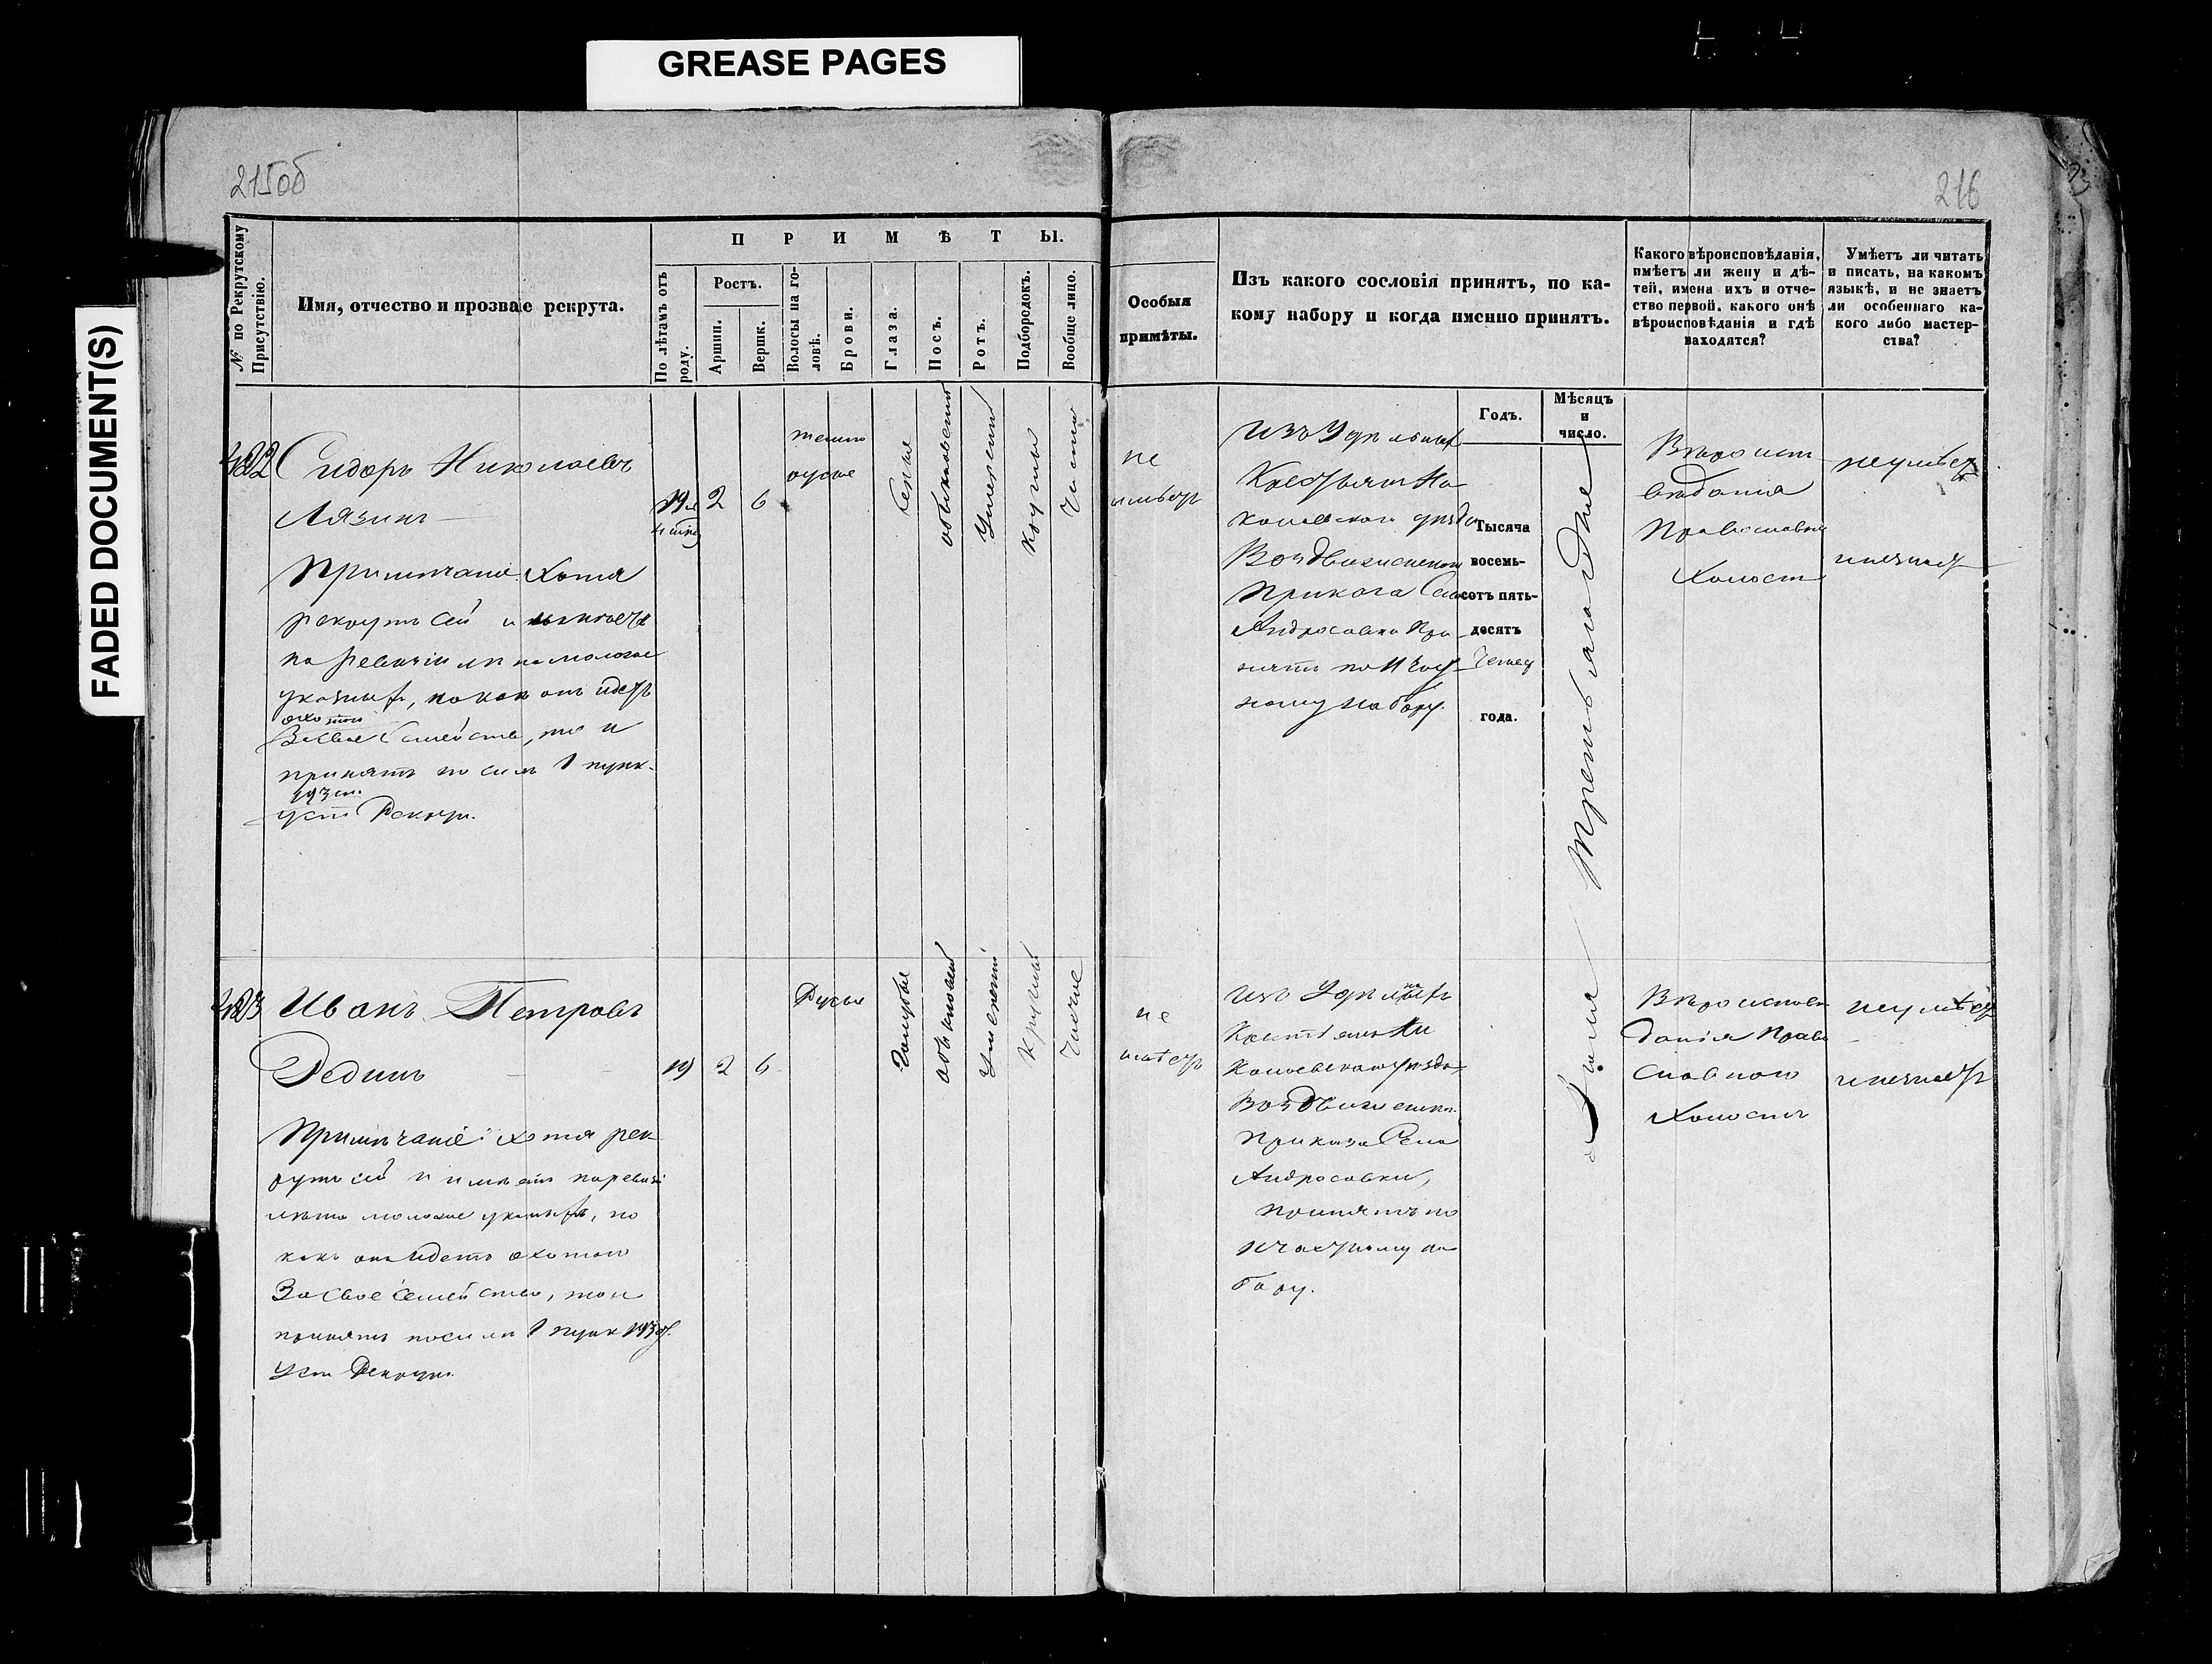 GREASE PAGES
FADED DOCUMENT(S)
215об
216
№ по Рекрутскому Присутствію.
Имя, отчество и прозваіе рекрута.
ПРИМѢТЫ.
По лѣтамъ отъ роду.
Ростъ.
Аршин.
Вершк.
Волосы на головѣ.
Брови.
Глаза.
Носъ.
Ротъ.
Подбородокъ.
Вообще лицо.
Особыя
примѣты.
Изъ какого сословія принятъ, по ка-
кому набору и когда именно принятъ.
Какого вѣроисповѣданія,
имѣетъ ли жену и дѣ-
тей, имена ихъ и отче-
ство первой, какого онѣ
вѣроисповѣданія и гдѣ
находятся?
Умѣетъ ли читать
и писать, на какомъ
языкѣ, и не знаетъ
ли особеннаго ка-
кого либо мастер-
ства?
Годъ.
Мѣсяцъ
и
число.
422
Сидоръ Николаевъ
Лязинъ
Примѣчаніе Хотя
рекрутъ сей и имѣетъ
по ревизіи лѣта моложе
указныхъ, но какъ онъ идетъ
охотою
за свое Семейство, то и
принятъ по силѣ 1 пунк.
193 ст.
уст Рекрут.
19
2
6
темно
русые
Серые
обыкновенный
Умеренный
круглый
Чистое
не
имѣетъ
Изъ Удѣльныхъ
Крестьянъ Ни
колаевскаго уѣзда
Воздвиженскаго
Приказа Села
Андросовки При
нятъ по 11 част
ному набору.
Тысяча
восемь-
сотъ пять-
десятъ
четвер
года.
Іюля Третьягодне
Вѣроиспо
вѣданія
Православнаго
Холостъ
неумѣетъ
инезнаетъ
423
Иванъ Петровъ
Рединъ
Примѣчаніе: хотя рек
рутъ сей и имѣетъ поревизіи
лѣта моложе указныхъ, но
какъ онъ идетъ охотою
За свое семейство, тои
принятъ посилѣ 1 пунк 193 ст.
Уст Рекрут.
19
2
6
Русые
Голубые
обыкновен
Умеренный
Круглый
Чистое
не
имѣетъ
изъ Удѣльныхъ
Крестьянъ Ни
колаевскагоуѣзда
Воздвиженск.
Приказа Села
Андросовки,
принятъ по
11 частному на
бору.
Вѣроисповѣ
данія Право
славнаго
Холостъ
неумѣетъ
инезнаетъ